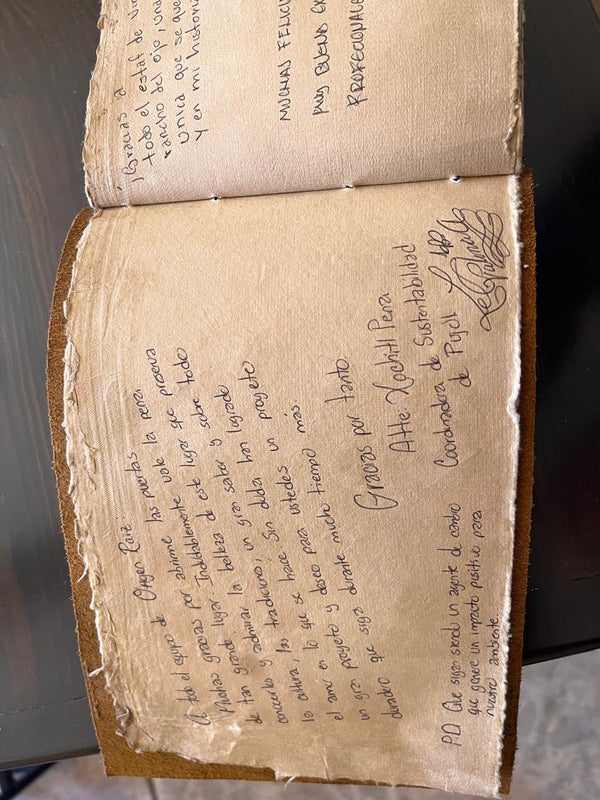 A todo el equipo de Origen Raíz:
Muchas gracias por abrirme las puertas
de tan grande lugar. Indudablemente vale la pena
conocerlo y admirar la belleza de este lugar que preserva
la cultura, las tradiciones, un gran sabor y sobre todo
el amor en lo que se hace. Sin duda han logrado
un gran proyecto y deseo para ustedes un proyecto
duradero que siga durante mucho tiempo más.
Gracias por tanto.
Atte Xochitl Pena
Coordinadora de Sustentabilidad
de Pujol
P.D Que sigan siendo un agente de cambio
que genere un impacto positivo para
nuestro ambiente.
¡Gracias a
todo el estaf de
rancho del ojo, una
unica que se que
y en mi
MUCHAS
MUY BUENA
PROFECIONALE